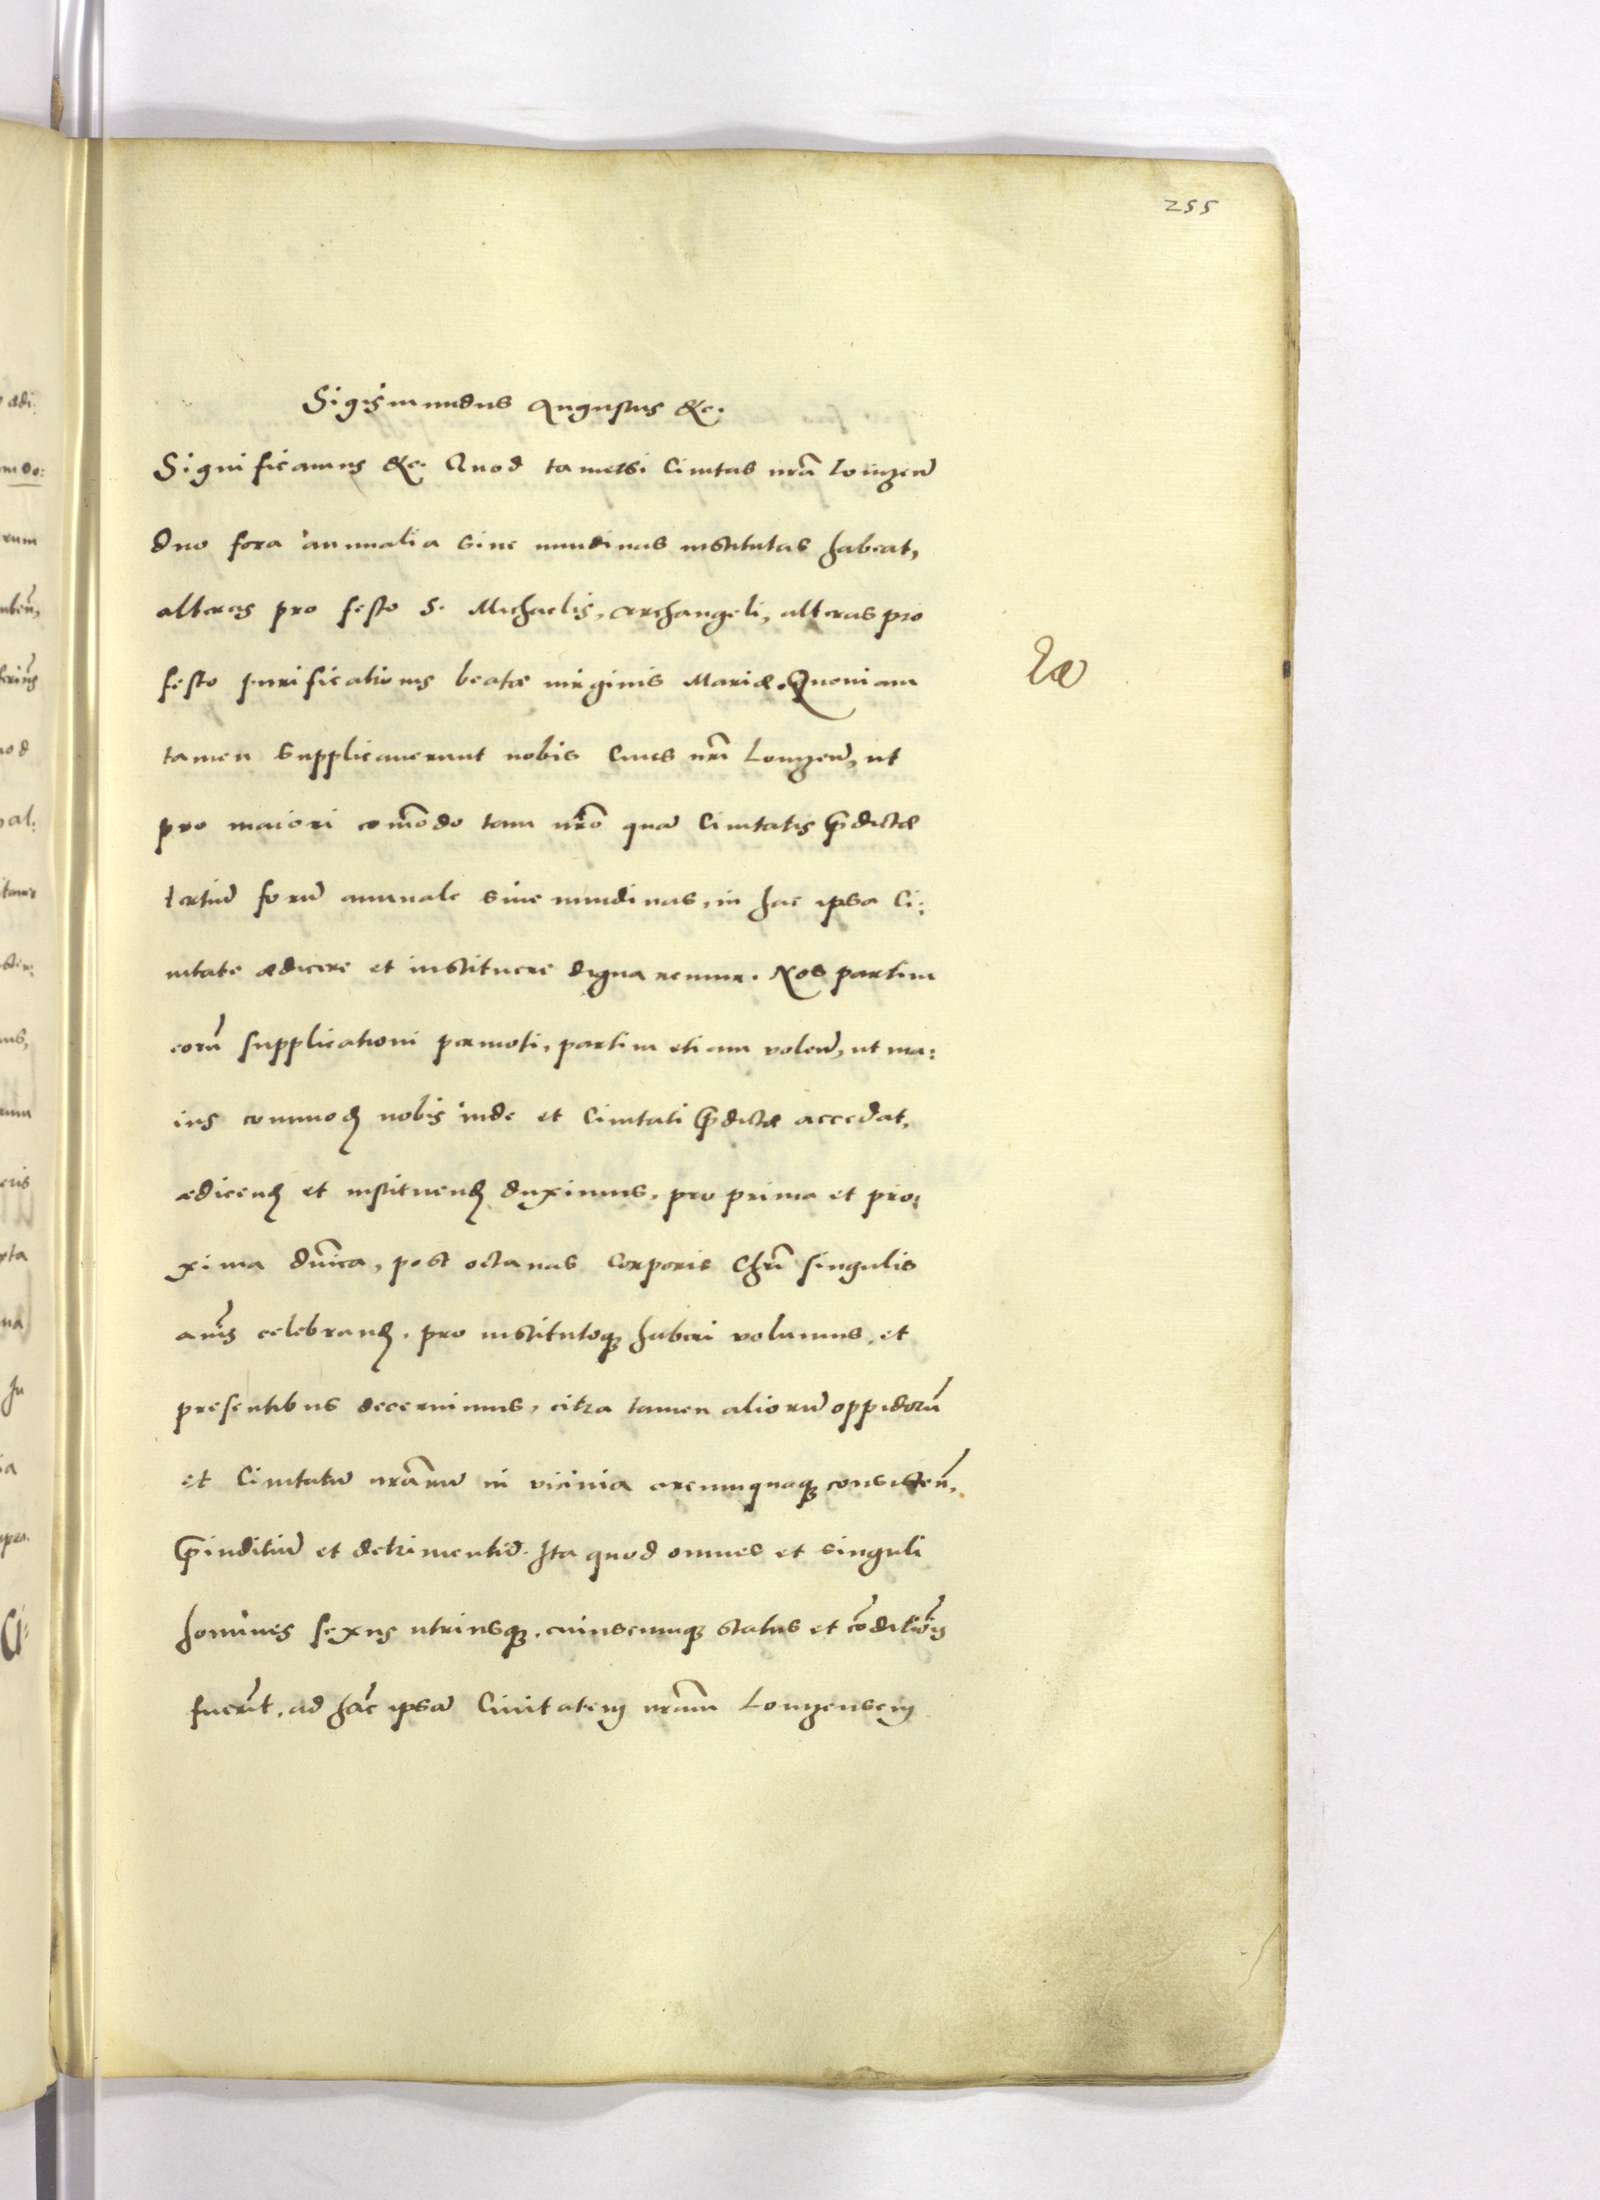 255
Sigismundus Augustus &c.
Significamus &c. Quod tametsi Civitas nrã Lomzeñ
duo fora annualia sive nundinas institutas habeat,
alteras pro festo S. Michaelis, Archangeli, alteras pro
festo purificationis beatæ virginis Mariæ. Quoniam
tamen supplicaverunt nobis Cives nri Lomzeñ, ut
pro maiori comõdo tam nrõ quã Civitatis p̃dictæ
tertiũ forũ annuale sive nundinas, in hac ipsa Ci:
vitate ædicere et instituere dignaremur. Nos partim
eorũ supplicationi permoti, partim etiam voleñ, ut ma:
ius commod nobis inde et Civitati p̃dictæ accedat,
ædicend et instituend duximus, pro prima et pro:
xima dnica, post octavas Corporis Chri singulis
anis celebrand. pro institutoq haberi volumus, et
presentibus decernimus, citra tamen aliorũ oppidorũ
et Civitatũ nrãrũ in vicinia circumquaq consisteñ,
p̃iuditiũ et detrimentũ. Ita quod omnes et singuli
homines sexus utriusq, cuiuscunq status et cõditiõis
fuerĩt, ad hãc ipsã Civitatem nrãm Lomzensem